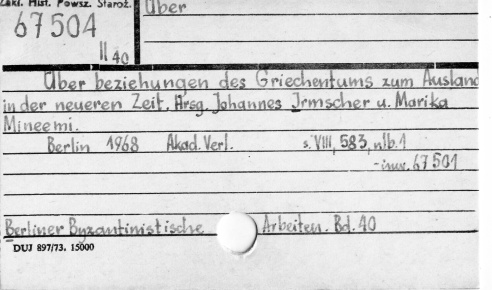 Zakł. Hist. Powsz. Staroż.
Über
67504
II 40
Über beziehungen des Griechentums zum Ausland
in der neueren Zeit. Hrsg. Johannes Irmscher u. Marika
Mineemi.
Berlin 1968 Akad. Verl. s. VIII, 583, nlb. 1
- inw. 67501
Berliner Byzantinistische Arbeiten. Bd. 40
DUJ 897/73. 15000